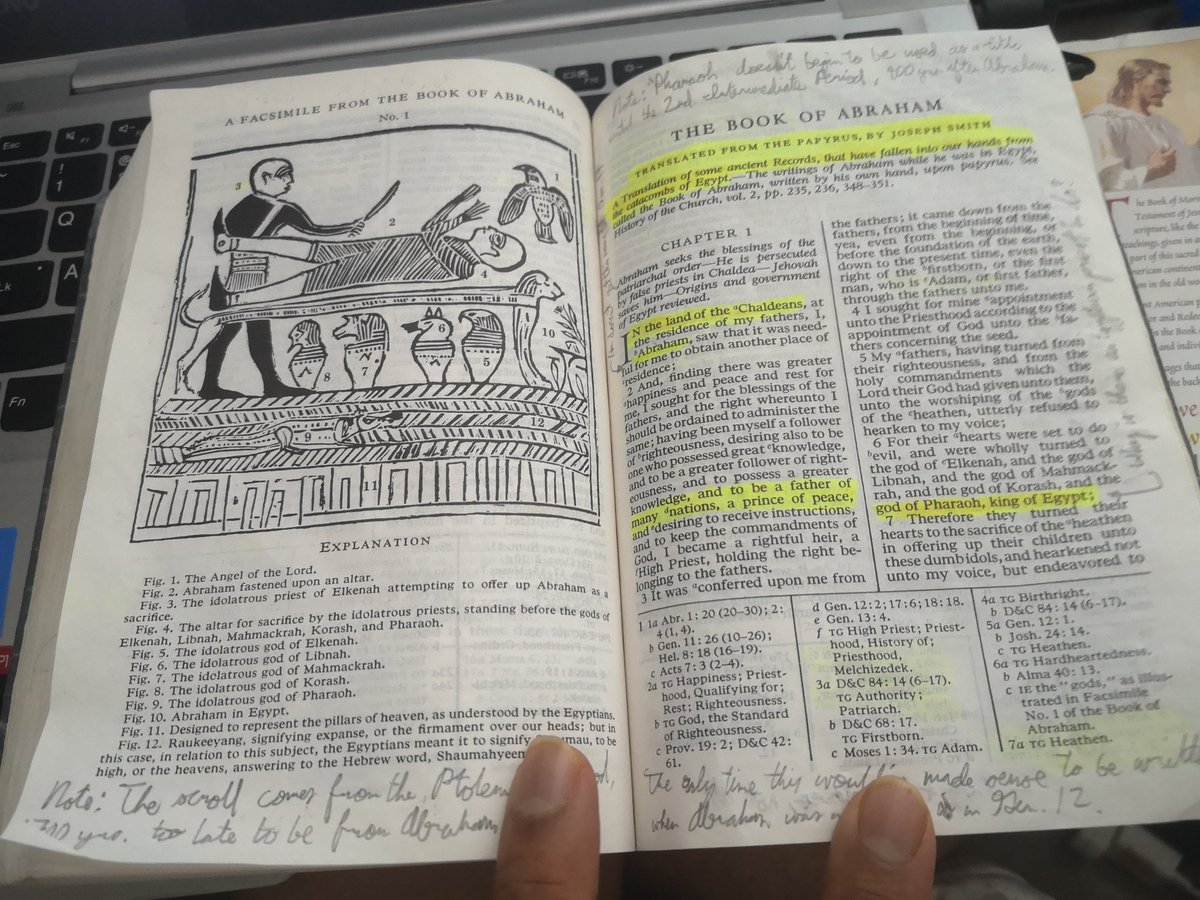 A FACSIMILE FROM THE BOOK OF ABRAHAM
No. 1
3
2
1
4
10
6
8
7
5
12
9
11
EXPLANATION
Fig. 1. The Angel of the Lord.
Fig. 2. Abraham fastened upon an altar.
Fig. 3. The idolatrous priest of Elkenah attempting to offer up Abraham as a
sacrifice.
Fig. 4. The altar for sacrifice by the idolatrous priests, standing before the gods of
Elkenah, Libnah, Mahmackrah, Korash, and Pharaoh.
Fig. 5. The idolatrous god of Elkenah.
Fig. 6. The idolatrous god of Libnah.
Fig. 7. The idolatrous god of Mahmackrah.
Fig. 8. The idolatrous god of Korash.
Fig. 9. The idolatrous god of Pharaoh.
Fig. 10. Abraham in Egypt.
Fig. 11. Designed to represent the pillars of heaven, as understood by the Egyptians.
Fig. 12. Raukeeyang, signifying expanse, or the firmament over our heads; but in
this case, in relation to this subject, the Egyptians meant it to signify to be
high, or the heavens, answering to the Hebrew word,
Note: The scroll comes from the
yrs. too late to be from Abraham
Note: "Pharaoh doesn't begin to be used as a title
until the 2nd Intermediate Period, 400 yrs after Abraham.
THE BOOK OF ABRAHAM
TRANSLATED FROM THE PAPYRUS, BY JOSEPH SMITH
A Translation of some ancient Records, that have fallen into our hands from
the catacombs of Egypt.—The writings of Abraham while he was in Egypt,
called the Book of Abraham, written by his own hand, upon papyrus. See
History of the Church, vol. 2, pp. 235, 236, 348–351.
CHAPTER 1
Abraham seeks the blessings of the
patriarchal order—He is persecuted
by false priests in Chaldea—Jehovah
saves him—Origins and government
of Egypt reviewed.
IN the land of the aChaldeans, at
the residence of my fathers, I,
bAbraham, saw that it was need-
ful for me to obtain another place of
cresidence;
2 And, finding there was greater
happiness and peace and rest for
me, I sought for the blessings of the
fathers, and the right whereunto I
should be ordained to administer the
same; having been myself a follower
of brighteousness, desiring also to be
one who possessed great cknowledge,
and to be a greater follower of right-
eousness, and to possess a greater
knowledge, and to be a father of
many dnations, a prince of peace,
and edesiring to receive instructions,
and to keep the commandments of
God, I became a rightful heir, a
fHigh Priest, holding the right be-
longing to the fathers.
3 It was aconferred upon me from
the fathers; it came down from the
fathers, from the beginning of time,
yea, even from the beginning, or
before the foundation of the earth,
down to the present time, even the
right of the bfirstborn, or the first
man, who is cAdam, or first father,
through the fathers unto me.
4 I sought for mine aappointment
unto the Priesthood according to the
appointment of God unto the bfa-
thers concerning the seed.
5 My afathers, having turned from
their righteousness, and from the
holy commandments which the
Lord their God had given unto them,
unto the worshiping of the bgods
of the cheathen, utterly refused to
hearken to my voice;
6 For their ahearts were set to do
bevil, and were wholly turned to
the god of cElkenah, and the god of
Libnah, and the god of Mahmack-
rah, and the god of Korash, and the
god of Pharaoh, king of Egypt;
7 Therefore they turned their
hearts to the sacrifice of the aheathen
in offering up their children unto
these dumb idols, and hearkened not
unto my voice, but endeavored to
1 1a Abr. 1: 20 (20–30); 2:
4 (1, 4).
b Gen. 11: 26 (10–26);
Hel. 8: 18 (16–19).
c Acts 7: 3 (2–4).
2a TG Happiness; Priest-
hood, Qualifying for;
Rest; Righteousness.
b TG God, the Standard
of Righteousness.
c Prov. 19: 2; D&C 42:
61.
d Gen. 12: 2; 17: 6; 18: 18.
e Gen. 13: 4.
f TG High Priest; Priest-
hood, History of;
Priesthood,
Melchizedek.
3a D&C 84: 14 (6–17).
TG Authority;
Patriarch.
b D&C 68: 17.
TG Firstborn.
c Moses 1: 34. TG Adam.
4a TG Birthright.
b D&C 84: 14 (6–17).
5a Gen. 12: 1.
b Josh. 24: 14.
c TG Heathen.
6a TG Hardheartedness.
b Alma 40: 13.
c IE the "gods," as illus-
trated in Facsimile
No. 1 of the Book of
Abraham.
7a TG Heathen.
The only time this made sense to be
when Abraham was as in Gen. 12.
Why is there an Egyptian
Esc
F10
!
1
@
Q
A
Fn
he Book of Mor
Testament of Je
scripture, like the
teachings, given in a
part of this sacred